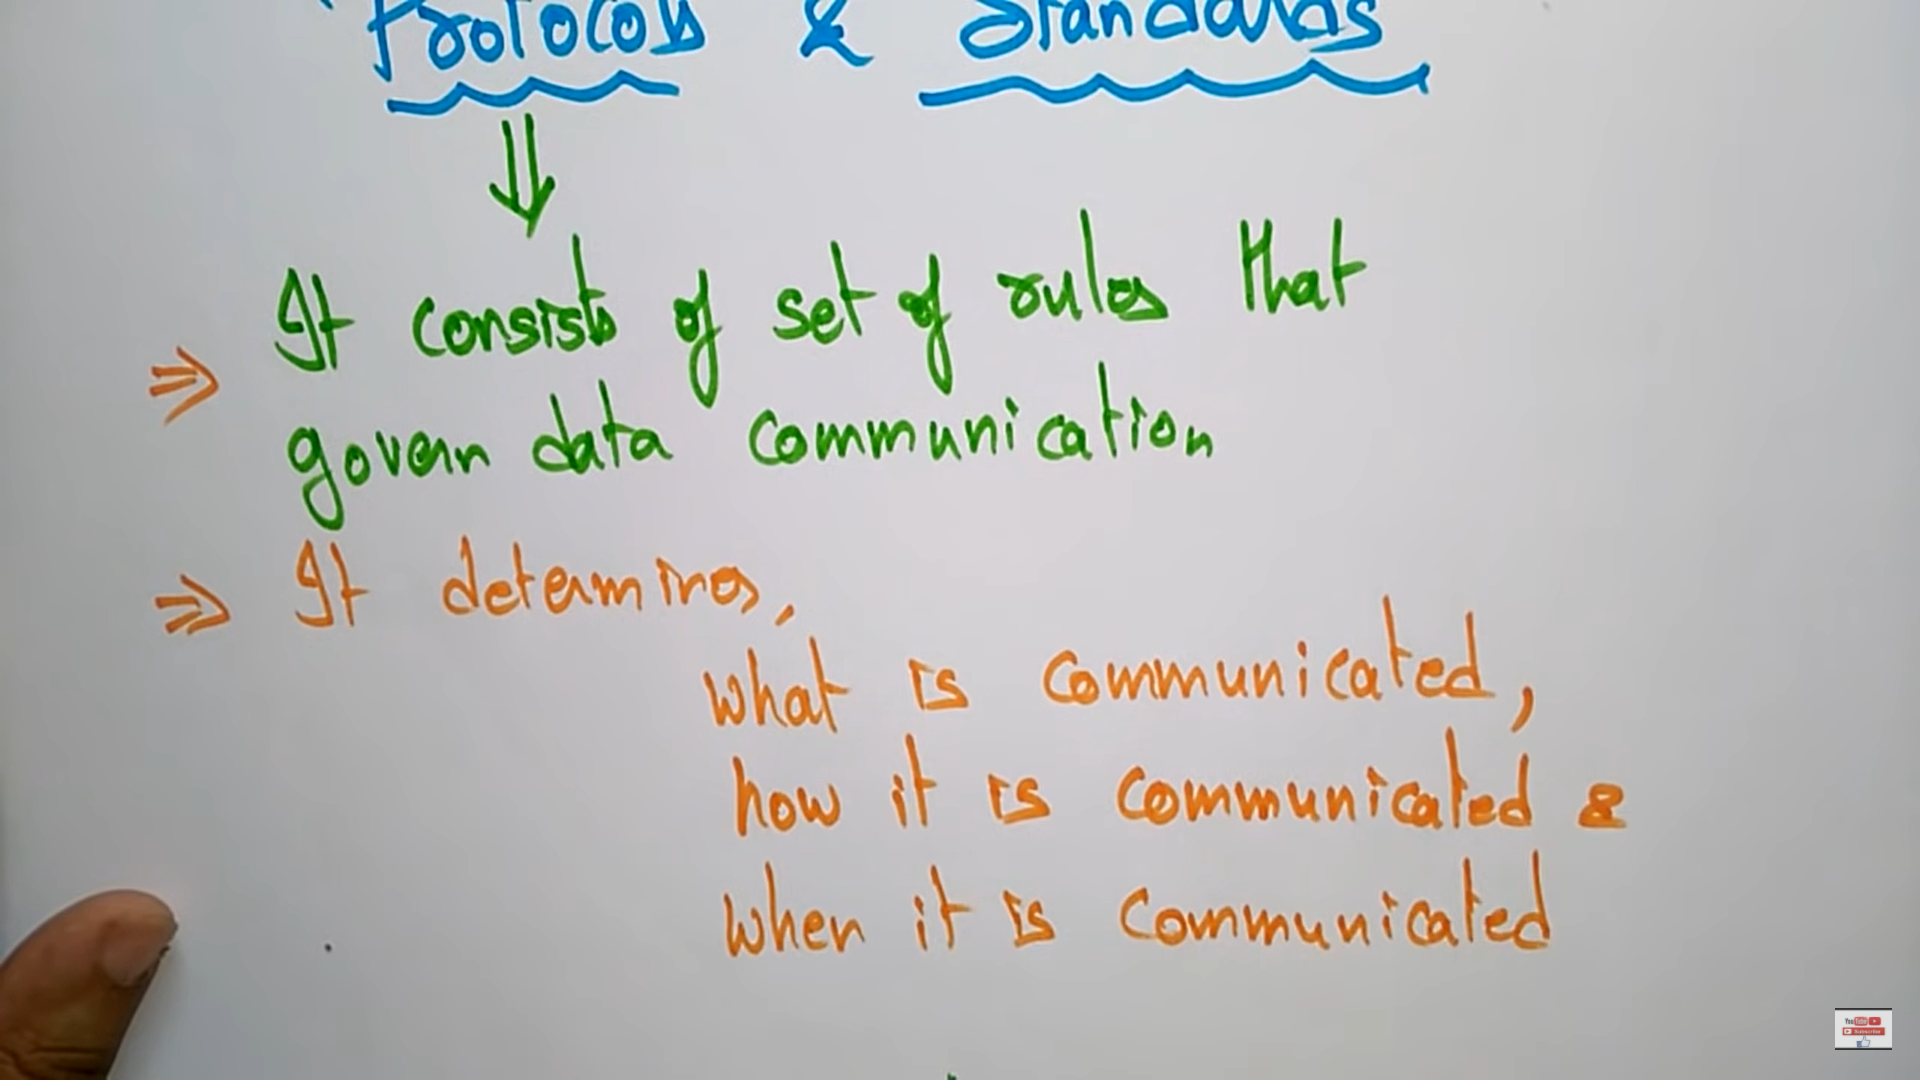 Protocols & Standards
It consists of set of rules that
govern data communication
It determines,
what is communicated,
how it is communicated &
when it is communicated
YouTube
Subscribe